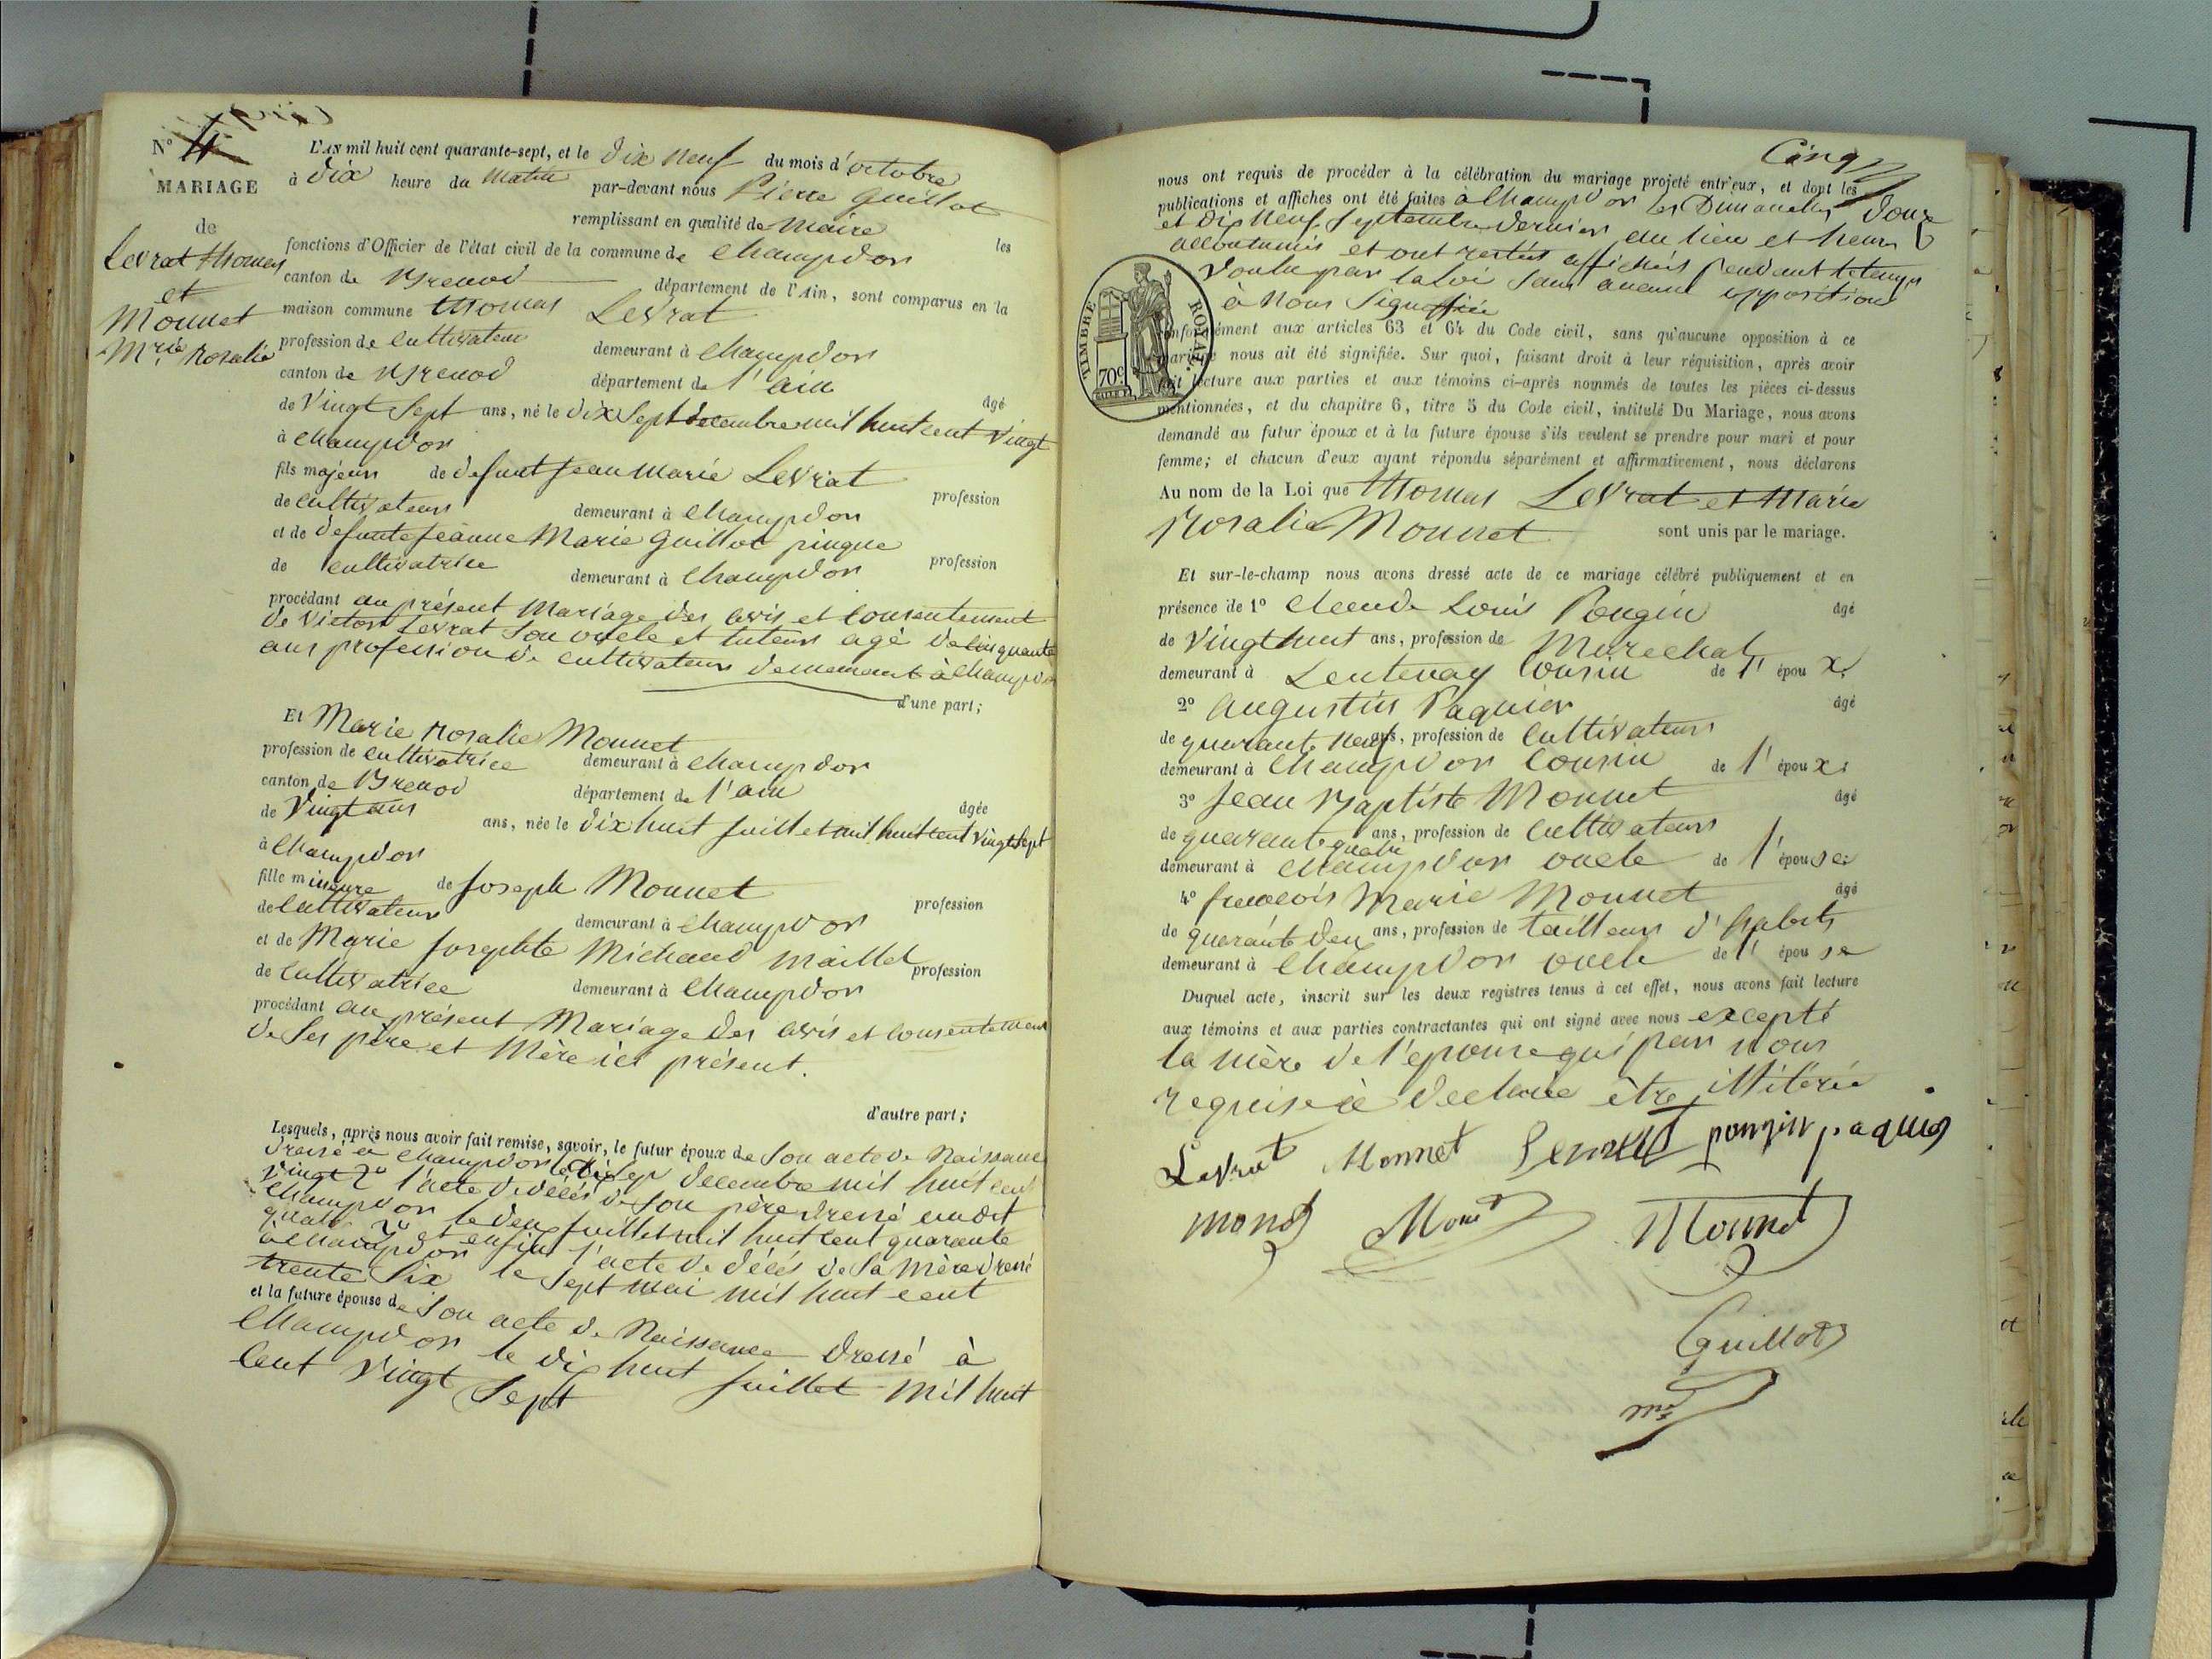 N° 4
MARIAGE
de
Levrat Thomas
et
Monnet
Mrie Rosalie
L'AN mil huit cent quarante-sept, et le dix neuf du mois d'octobre
à dix heure du matin par-devant nous Pierre Guillot
remplissant en qualité de maire les
fonctions d'Officier de l'état civil de la commune de Champdor
canton de Brenod département de l'Ain, sont comparus en la
maison commune Thomas Levrat
profession de cultivateur demeurant à Champdor
canton de Brenod département de l'ain âgé
de vingt Sept ans, né le dix Sept decembre mil huit cent vingt
à Champdor
fils majeur de defunt Jean Marie Levrat profession
de cultivateur demeurant à Champdor
et de defunte Jeanne Marie Guillot pingue profession
de cultivatrice demeurant à Champdor
procédant au présent Mariage des avis et consentement
de Victor Levrat Son oncle et tuteur agé de cinquante
ans profession de cultivateur demeurant à Champdor
d'une part;
Et Marie Rosalie Monnet
profession de cultivatrice demeurant à Champdor
canton de Brenod département de l'ain âgée
de vingt ans ans, née le dix huit juillet mil huit cent vingt Sept
à Champdor
fille mineure de Joseph Monnet profession
de cultivateur demeurant à Champdor
et de Marie Josephte Michaud Maillet profession
de cultivatrice demeurant à Champdor
procédant au présent Mariage des avis et consentement
de Ses père et Mère ici présent.
d'autre part;
Lesquels, après nous avoir fait remise, savoir, le futur époux de Son acte de Naissance
dressé à Champdor le dix Sept decembre mil huit cent
vingt 2° l'acte de décés de Son père dressé audit
Champdor le deux juillet mil huit cent quarante
quatre 3° et enfin l'acte de décés de Sa Mère dressé
à Champdor le Sept mai mil huit cent
trente Six
et la future épouse de Son acte de Naissance dressé à
Champdor le dix huit juillet mil huit
cent vingt Sept
Cinq
nous ont requis de procéder à la célébration du mariage projeté entr'eux, et dont les
publications et affiches ont été faites à Champdor les Dimanches douze
et dix neuf Septembre dernier au lieu et heure
accoutumés et ont restés affichés pendant le temps
voulu par la loi Sans aucune opposition
à Nous Signifiée
conformément aux articles 63 et 64 du Code civil, sans qu'aucune opposition à ce
mariage nous ait été signifiée. Sur quoi, faisant droit à leur réquisition, après avoir
fait lecture aux parties et aux témoins ci-après nommés de toutes les pièces ci-dessus
mentionnées, et du chapitre 6, titre 5 du Code civil, intitulé Du Mariage, nous avons
demandé au futur époux et à la future épouse s'ils veulent se prendre pour mari et pour
femme; et chacun d'eux ayant répondu séparément et affirmativement, nous déclarons
TIMBRE ROYAL.
70c
Au nom de la Loi que Thomas Levrat et Marie
Rosalie Monnet sont unis par le mariage.
Et sur-le-champ nous avons dressé acte de ce mariage célébré publiquement et en
présence de 1° Claude Louis Pongin âgé
de vingt huit ans, profession de Marechal
demeurant à Lentenay cousin de l'époux
2° Augustin Paquier âgé
de quarante neuf ans, profession de cultivateur
demeurant à Champdor cousin de l'époux
3° Jean Baptiste Monnet âgé
de quarante quatre ans, profession de cultivateur
demeurant à Champdor oncle de l'épouse
4° francois Marie Monnet âgé
de quarante deux ans, profession de tailleur d'habits
demeurant à Champdor oncle de l'épouse
Duquel acte, inscrit sur les deux registres tenus à cet effet, nous avons fait lecture
aux témoins et aux parties contractantes qui ont signé avec nous excepté
la mère de l'épouse qui par nous
requise à declarée être illitérée
Levrat Monnet Levrat pongin paquier
monet Monet Monnet
Guillot
mre